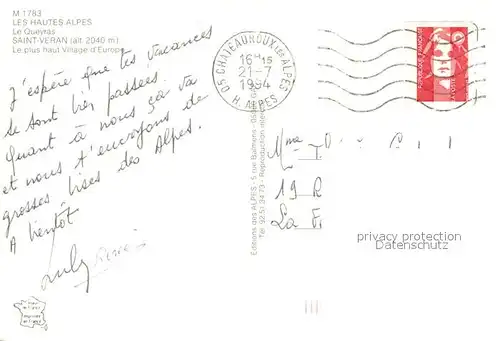 M 1783
LES HAUTES ALPES
Le Queyras
SAINT-VERAN (alt 2040 m)
Le plus haut Village d'Europe
J'espère que tes vacances
se sont bien passées.
Quant à nous ça va
et nous t'envoyons de
grosses bises des Alpes.
A bientôt
05 CHATEAUROUX LES ALPES
16H15
21-7
1994
H. ALPES
Editions des ALPES - 5 rue
Tel 92.51 34 73 - Reproduction
Mme
19 R
La
privacy protection
Datenschutz